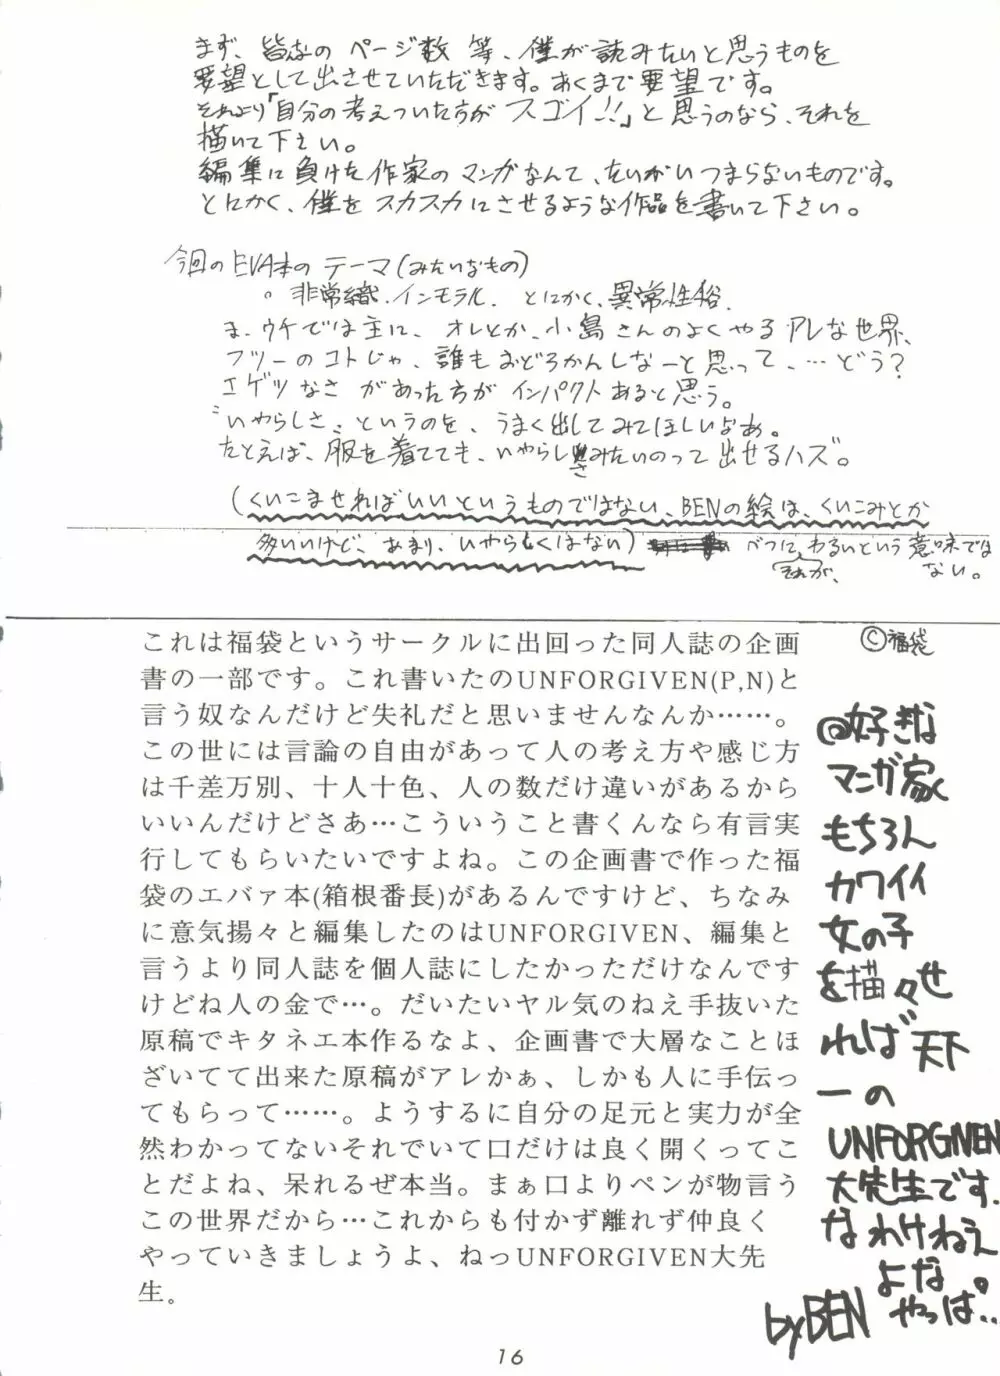 まず、皆なの ページ数 等、僕が読みたいと思うものを
要望として出させていただきます。あくまで要望です。
それより「自分の考えついた方が スゴイ!!」と思うのなら、それを
描いて下さい。
編集に負けた作家のマンガなんて、たいがいつまらないものです。
とにかく、僕を スカスカにさせるような作品を書いて下さい。
今回のEVA本の テーマ(みたいなもの)
。非常織.インモラル. とにかく、異常性俗.
ま、ウチでは主に、オレとか、小島さんのよくやるアレな世界、
フツーのコトじゃ、誰もおどろかんしなーと思って、…どう?
エゲツなさ があった方が インパクトあると思う。
〝いやらしさ〟というのを、うまく出してみてほしいなあ。
たとえば、服を着てても、いやらしさみたいのって出せるハズ。
(くいこませればいいというものではない、BENの絵は、くいこみとか
多いけど、あまり、いやらしくはない) べつに、それが、わるいという意味では
ない。
これは福袋というサークルに出回った同人誌の企画
書の一部です。これ書いたのUNFORGIVEN(P,N)と
言う奴なんだけど失礼だと思いませんなんか……。
この世には言論の自由があって人の考え方や感じ方
は千差万別、十人十色、人の数だけ違いがあるから
いいんだけどさあ…こういうこと書くんなら有言実
行してもらいたいですよね。この企画書で作った福
袋のエバァ本(箱根番長)があるんですけど、ちなみ
に意気揚々と編集したのはUNFORGIVEN、編集と
言うより同人誌を個人誌にしたかっただけなんです
けどね人の金で…。だいたいヤル気のねえ手抜いた
原稿でキタネエ本作るなよ、企画書で大層なことほ
ざいてて出来た原稿がアレかぁ、しかも人に手伝っ
てもらって……。ようするに自分の足元と実力が全
然わかってないそれでいて口だけは良く開くってこ
とだよね、呆れるぜ本当。まぁ口よりペンが物言う
この世界だから…これからも付かず離れず仲良く
やっていきましょうよ、ねっUNFORGIVEN大先
生。
©福袋
@好きな
マンガ家
もちろん
カワイイ
女の子
を描々せ
れば天下
一の
UNFORGIVEN
大先生です.
なわけねえ
よな。
やっぱ..
by BEN
16